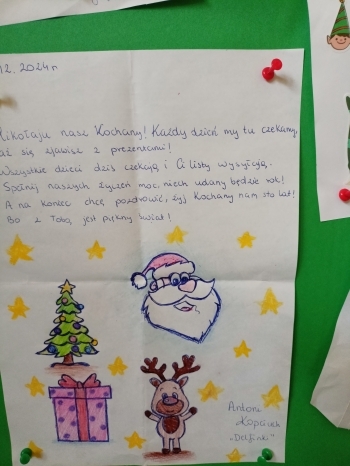 12.2024r
Mikołaju nasz Kochany! Każdy dzień my tu czekamy,
aż się zjawisz z prezentami!
Wszystkie dzieci dziś czekają i Ci listy wysyłają.
Spełnij naszych życzeń moc, niech udany będzie rok!
A na koniec chcę pozdrowić, żyj Kochany nam sto lat!
Bo z Tobą jest piękny świat!
Antoni
"Delfinki"